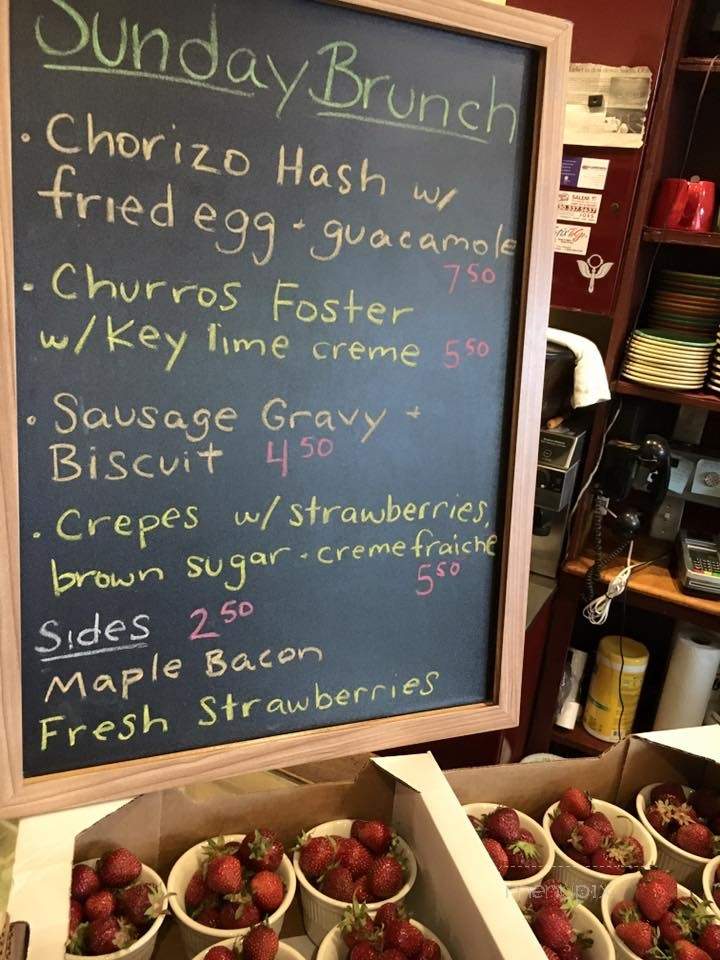 Sunday Brunch
· Chorizo Hash w/
fried egg + guacamole
7 50
· Churros Foster
w/ Key lime creme 5 50
· Sausage Gravy +
Biscuit 4 50
· Crepes w/ strawberries,
brown sugar + creme fraiche
5 50
Sides 2 50
Maple Bacon
Fresh Strawberries
menupix